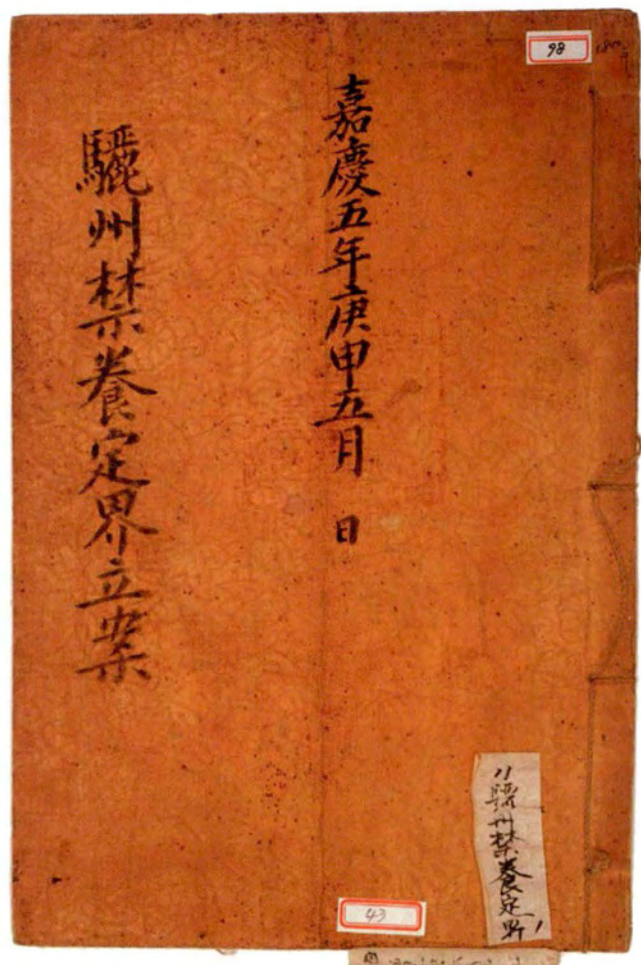 98
嘉慶五年庚申五月 日
驪州禁養定界立案
驪州禁養定界
43